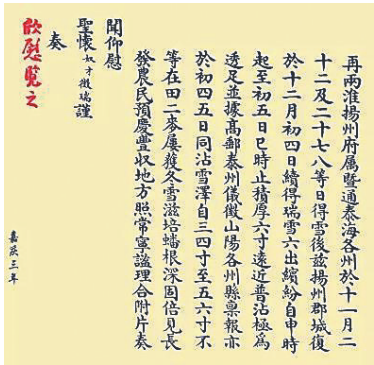 再兩淮揚州府属暨通泰海各州於十一月二
十二及二十七八等日得雪後兹揚州郡城復
於十二月初四日續得瑞雪六出繽紛自申時
起至初五日巳時止積厚六寸遠近普沾極為
透足並據高郵泰州儀徵山陽各州縣禀報亦
於初四五日同沾雪澤自三四寸至五六寸不
等在田二麥屢獲冬雪滋培蟠根深固倍見長
發農民預慶豐收地方照常寧謐理合附片奏
聞仰慰
聖懷奴才徵瑞謹
奏
欣慰覽之
嘉慶三年